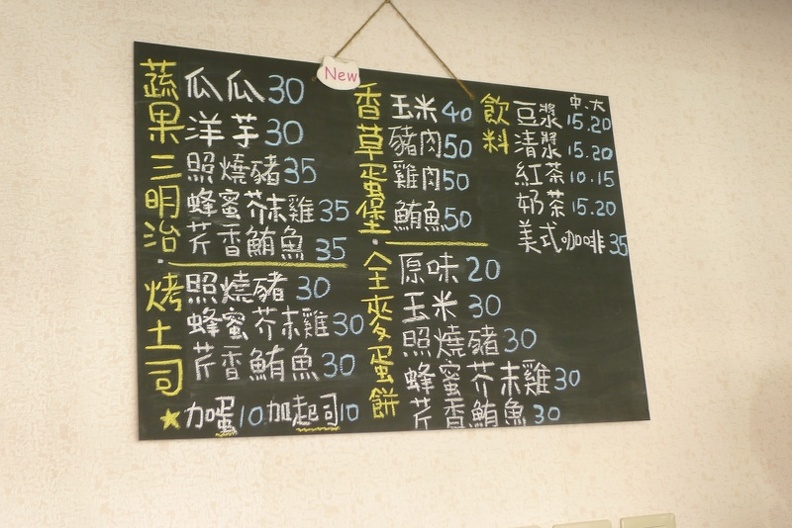 New
蔬果三明治
瓜瓜30
洋芋30
照燒豬35
蜂蜜芥末雞35
芹香鮪魚35
烤土司
照燒豬30
蜂蜜芥末雞30
芹香鮪魚30
★加蛋10 加起司10
香草蛋堡
玉米40
豬肉50
雞肉50
鮪魚50
全麥蛋餅
原味20
玉米30
照燒豬30
蜂蜜芥末雞30
芹香鮪魚30
飲料
中.大
豆漿15.20
清漿15.20
紅茶10.15
奶茶15.20
美式咖啡35